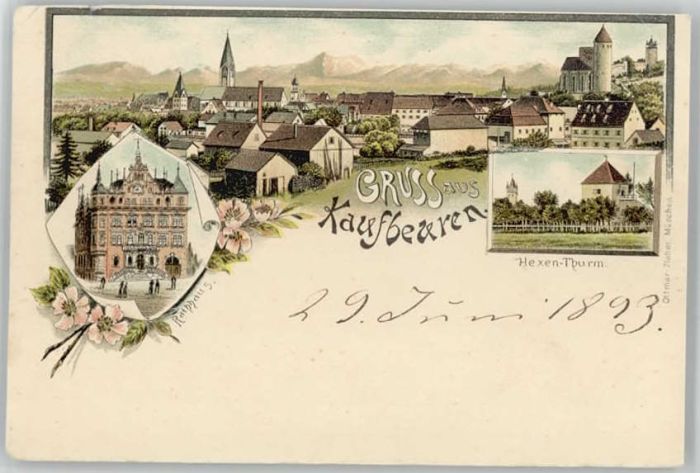 GRUSS aus
Kaufbeuren.
Rathhaus.
Hexen-Thurm.
Ottmar Zieher, München.
29. Juni 1893.